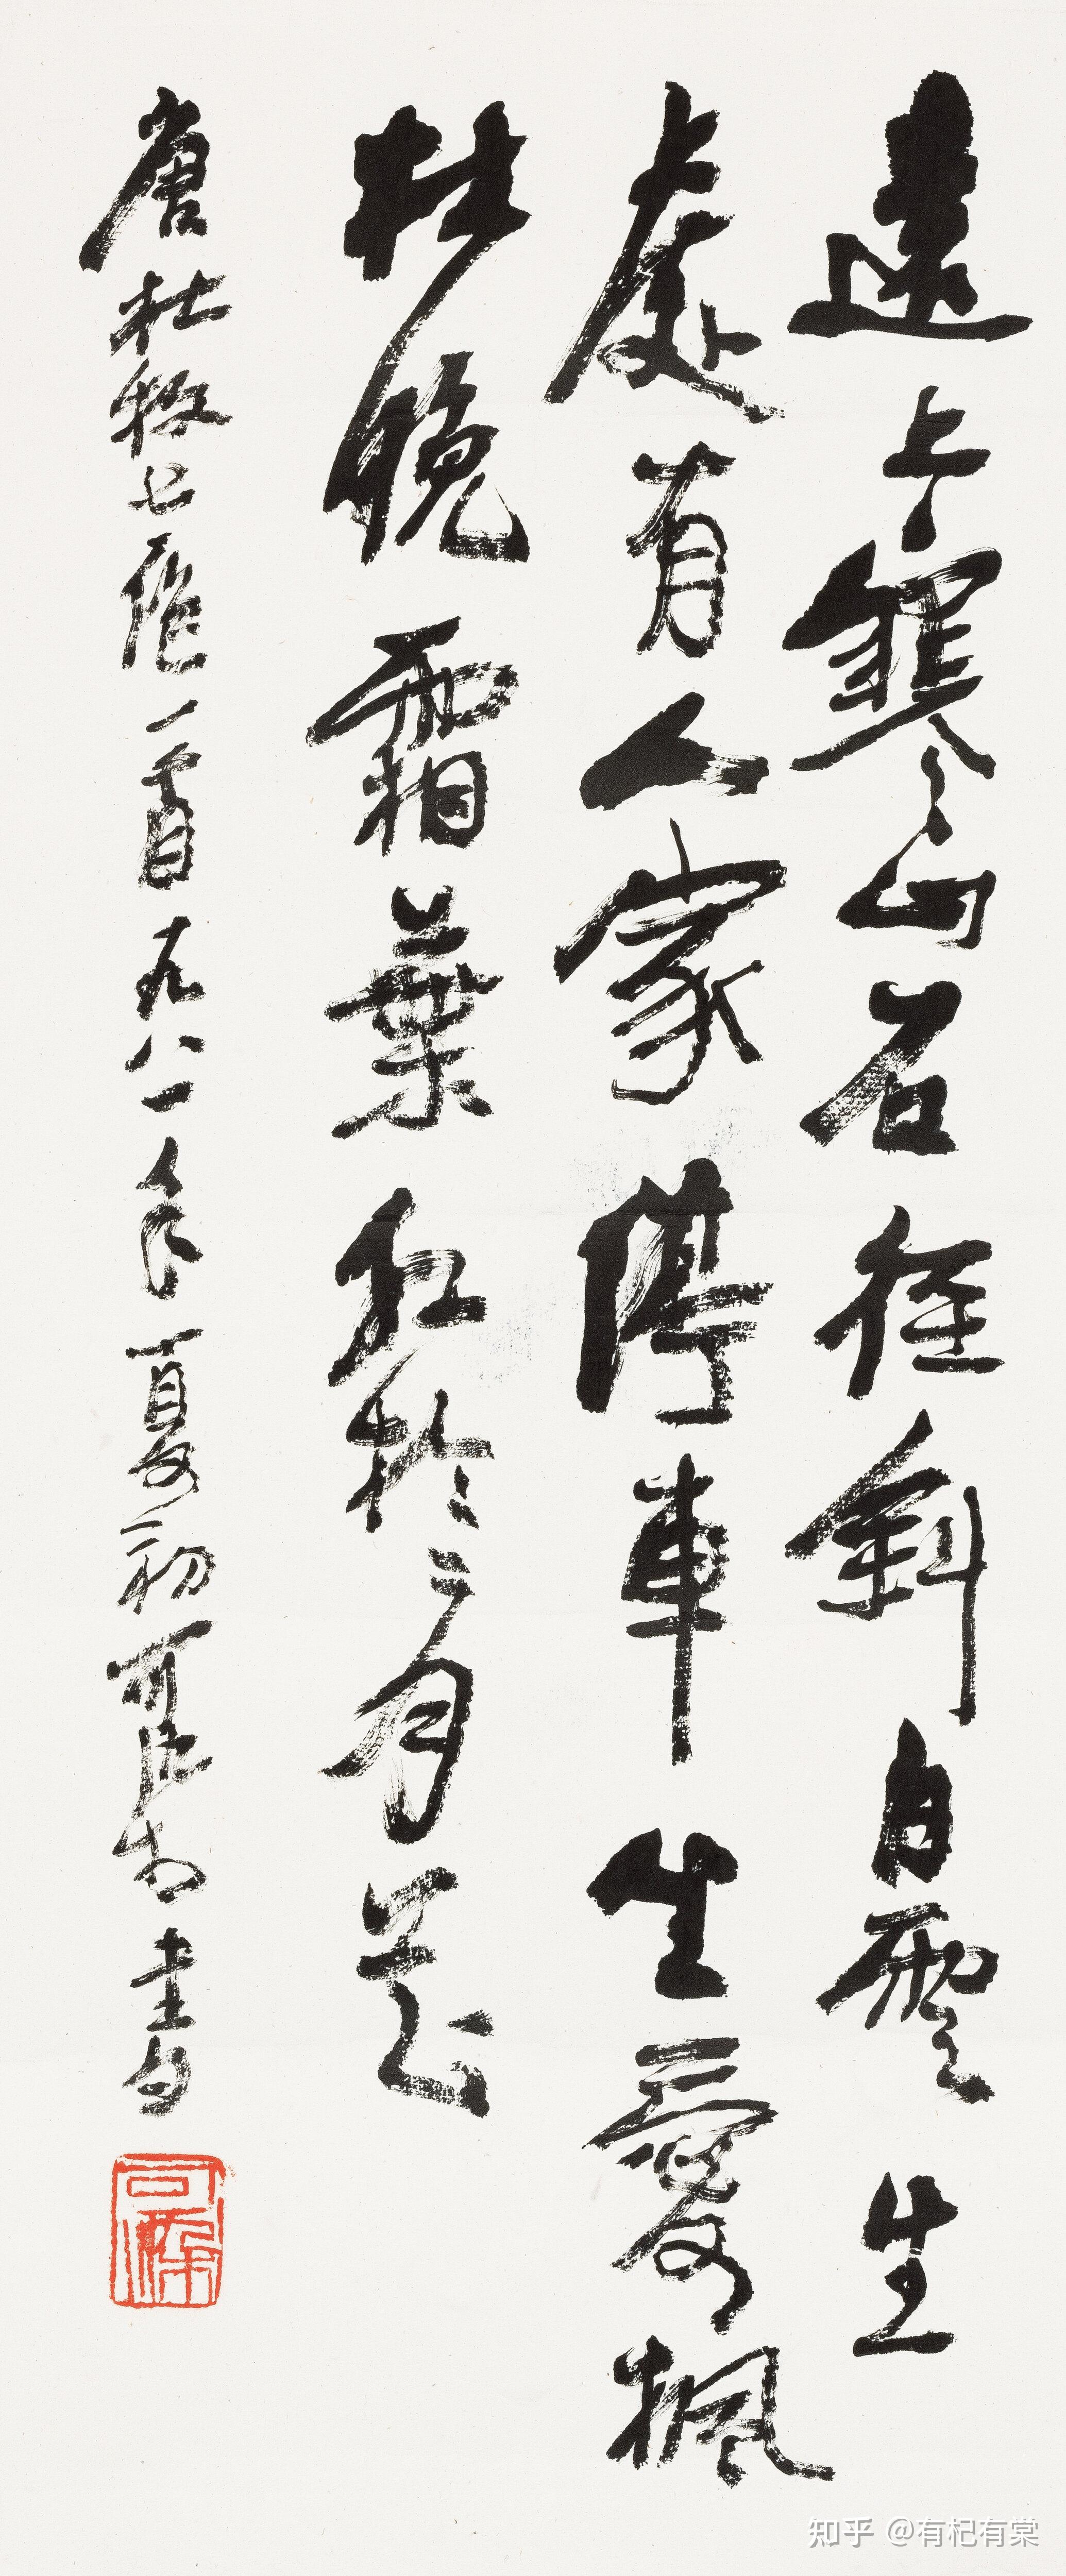 遠上寒山石徑斜白雲生
處有人家停車坐愛楓
林晚霜葉紅於二月花
唐杜牧七絕一首一九八一年夏初可染書
可染
知乎 @有杞有棠